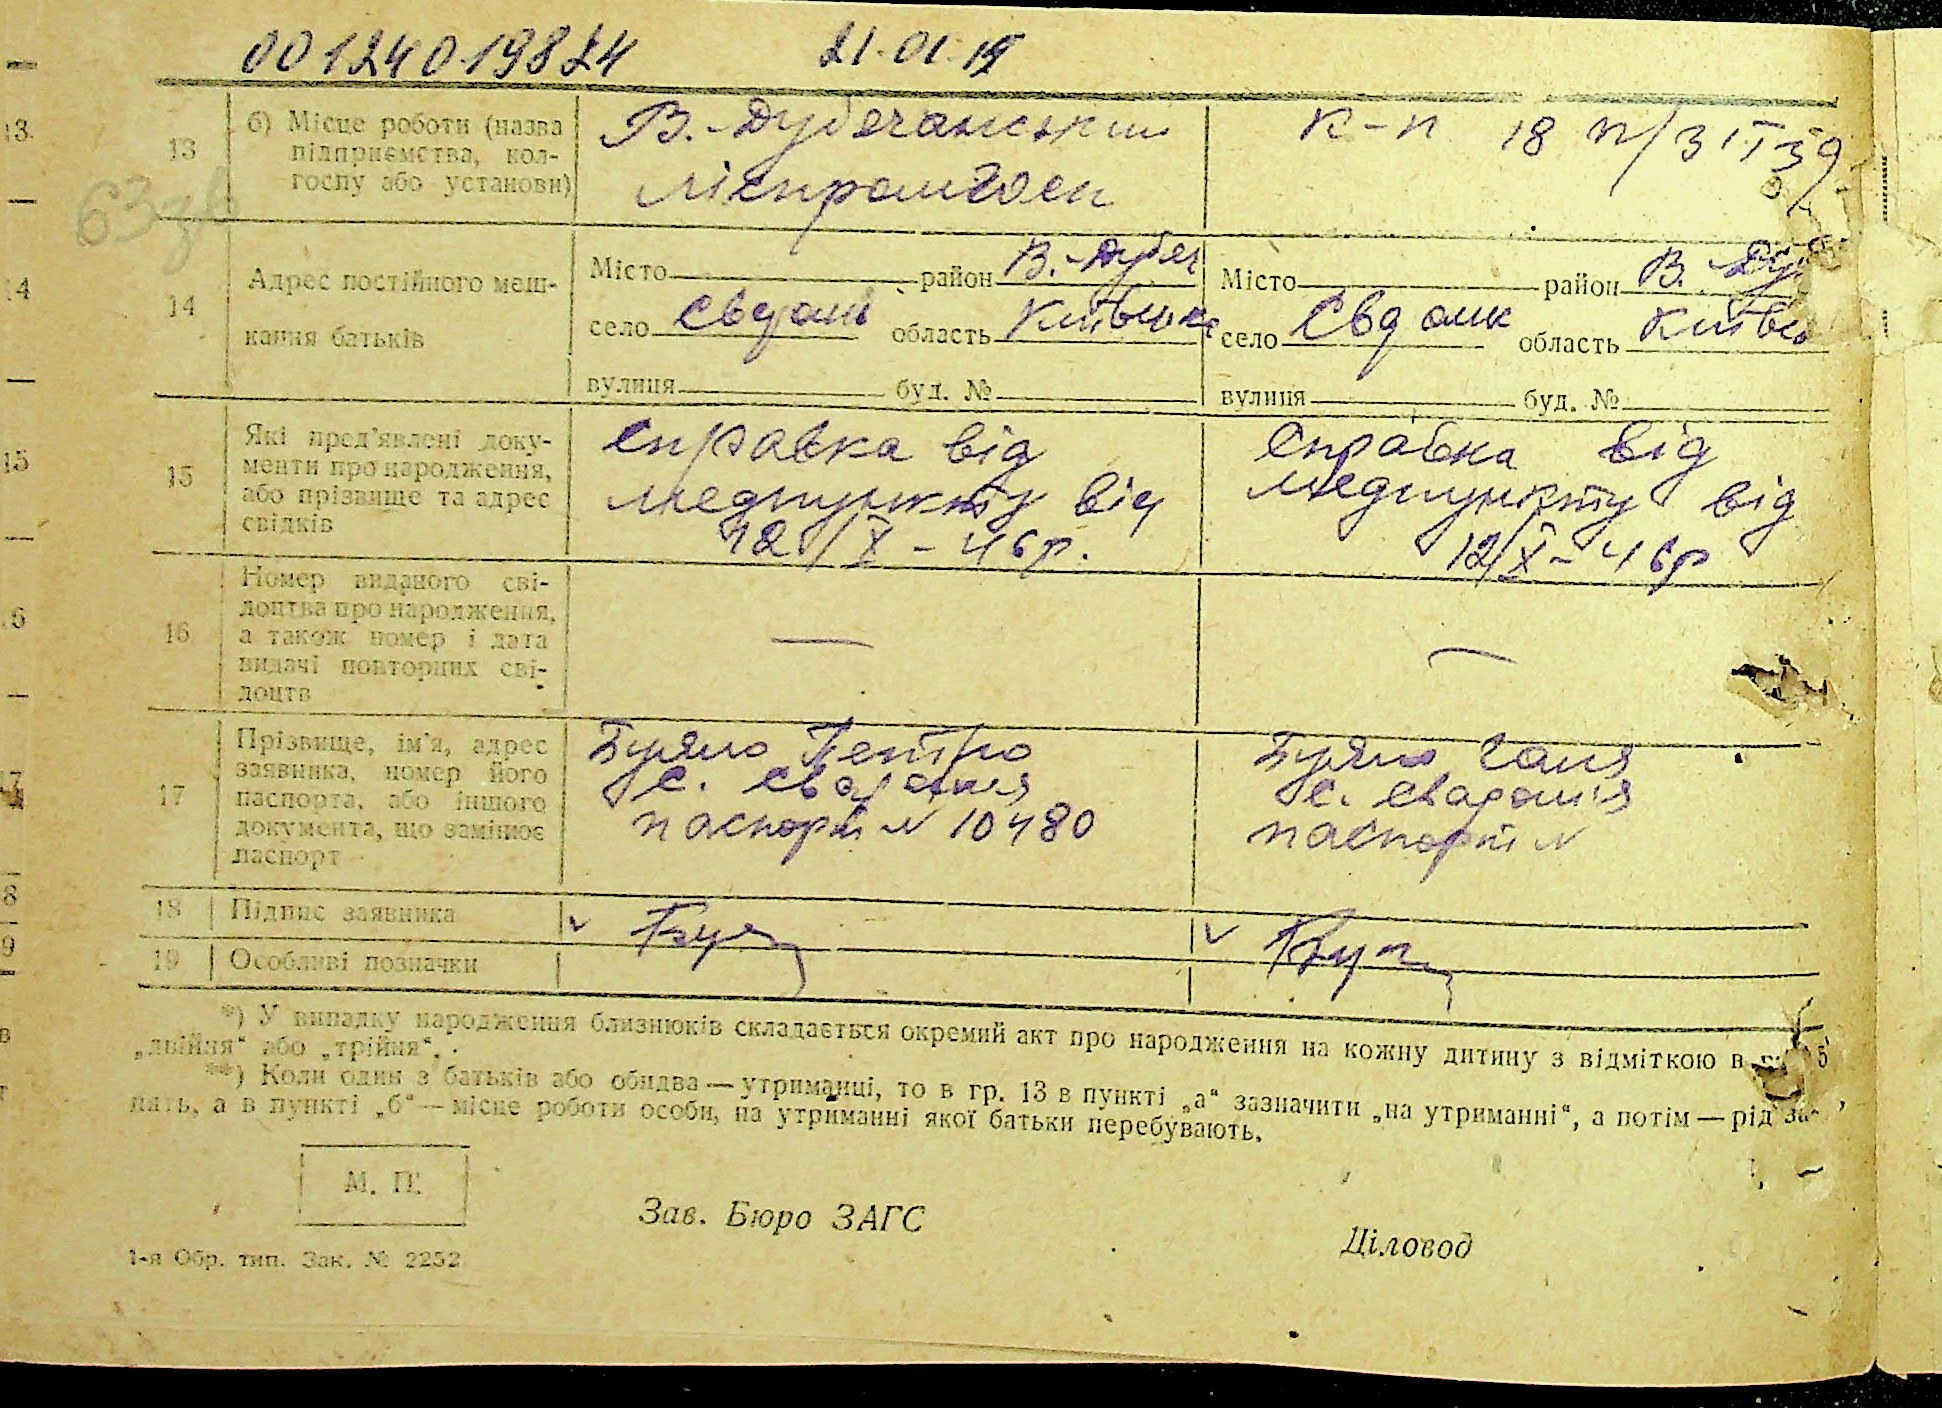 00124019824 21.01.
13 б) Місце роботи (назва підприємства, колгоспу або установи)
В.-Дубечанський
ліспромгосп
к-п 18 п/з
63зв
14 Адрес постійного мешкання батьків
Місто район В.-Дубеч
село область Київська
вулиця буд. №
Місто район В.-Ду
село область Київсь
вулиця буд. №
15 Які пред'явлені документи про народження, або прізвище та адрес свідків
Справка від
медпункту від
12/X-46р.
Справка від
медпункту від
12/X-46р
16 Номер виданого свідоцтва про народження, а також номер і дата видачі повторних свідоцтв
—
—
17 Прізвище, ім'я, адрес заявника, номер його паспорта, або іншого документа, що замінює паспорт
Буяло Петро
с.
паспорт N 10480
Буяло Галя
с.
паспорт N
18 Підпис заявника
19 Особливі позначки
*) У випадку народження близнюків складається окремий акт про народження на кожну дитину з відміткою в 5
„двійня“ або „трійня“.
**) Коли один з батьків або обидва — утриманці, то в гр. 13 в пункті „а“ зазначити „на утриманні“, а потім — рід за-
нять, а в пункті „б“ — місце роботи особи, на утриманні якої батьки перебувають.
М. П.
Зав. Бюро ЗАГС
Діловод
1-я Обр. тип. Зак. № 2252